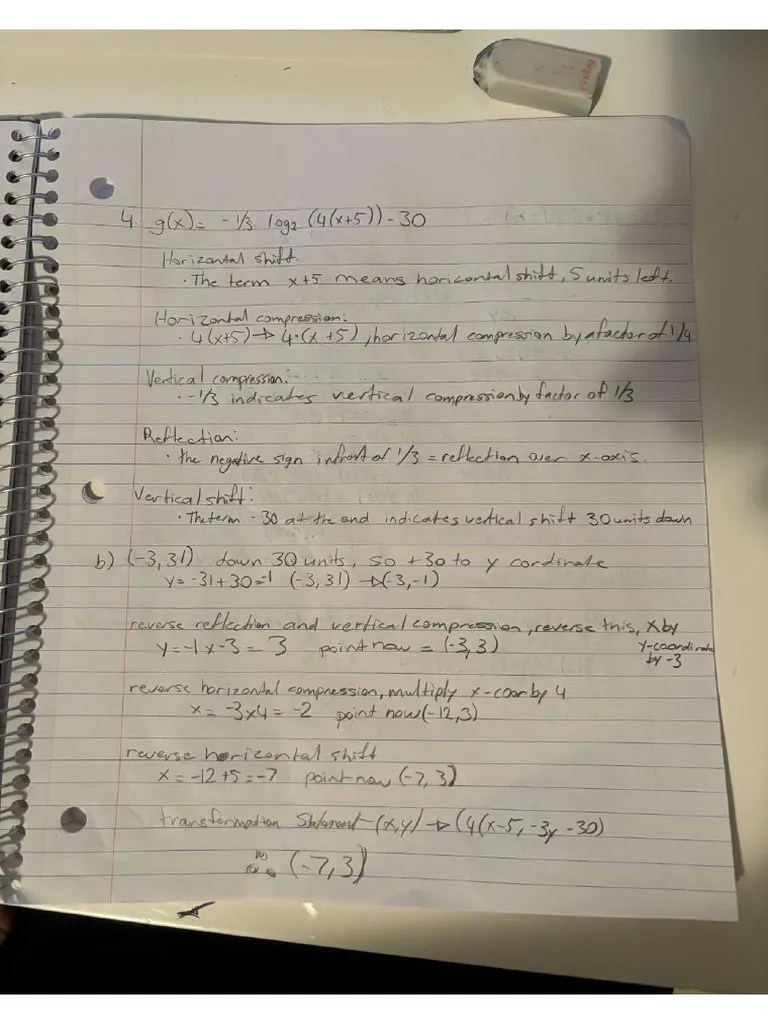 4. g(x) = -1/3 log2 (4(x+5)) - 30
Horizontal shift.
· The term x+5 means horizontal shift, 5 units left.
Horizontal compression:
· 4(x+5) → 4·(x+5), horizontal compression by a factor of 1/4
Vertical compression:
· -1/3 indicates vertical compression by factor of 1/3
Reflection:
· the negative sign infront of 1/3 = reflection over x-axis.
Vertical shift:
· The term -30 at the end indicates vertical shift 30 units down
b) (-3, 31) down 30 units, so +30 to y cordinate
y = -31 + 30 = -1 (-3, 31) → (-3, -1)
reverse reflection and vertical compression, reverse this, x by
y-coordinate
by -3
y = -1 x -3 = 3 point now = (-3, 3)
reverse horizontal compression, multiply x-coor by 4
x = -3 x 4 = -2 point now (-12, 3)
reverse horizontal shift
x = -12 + 5 = -7 point now (-7, 3)
transformation Statement (x, y) → (4(x-5, -3y -30)
∴ (-7, 3)